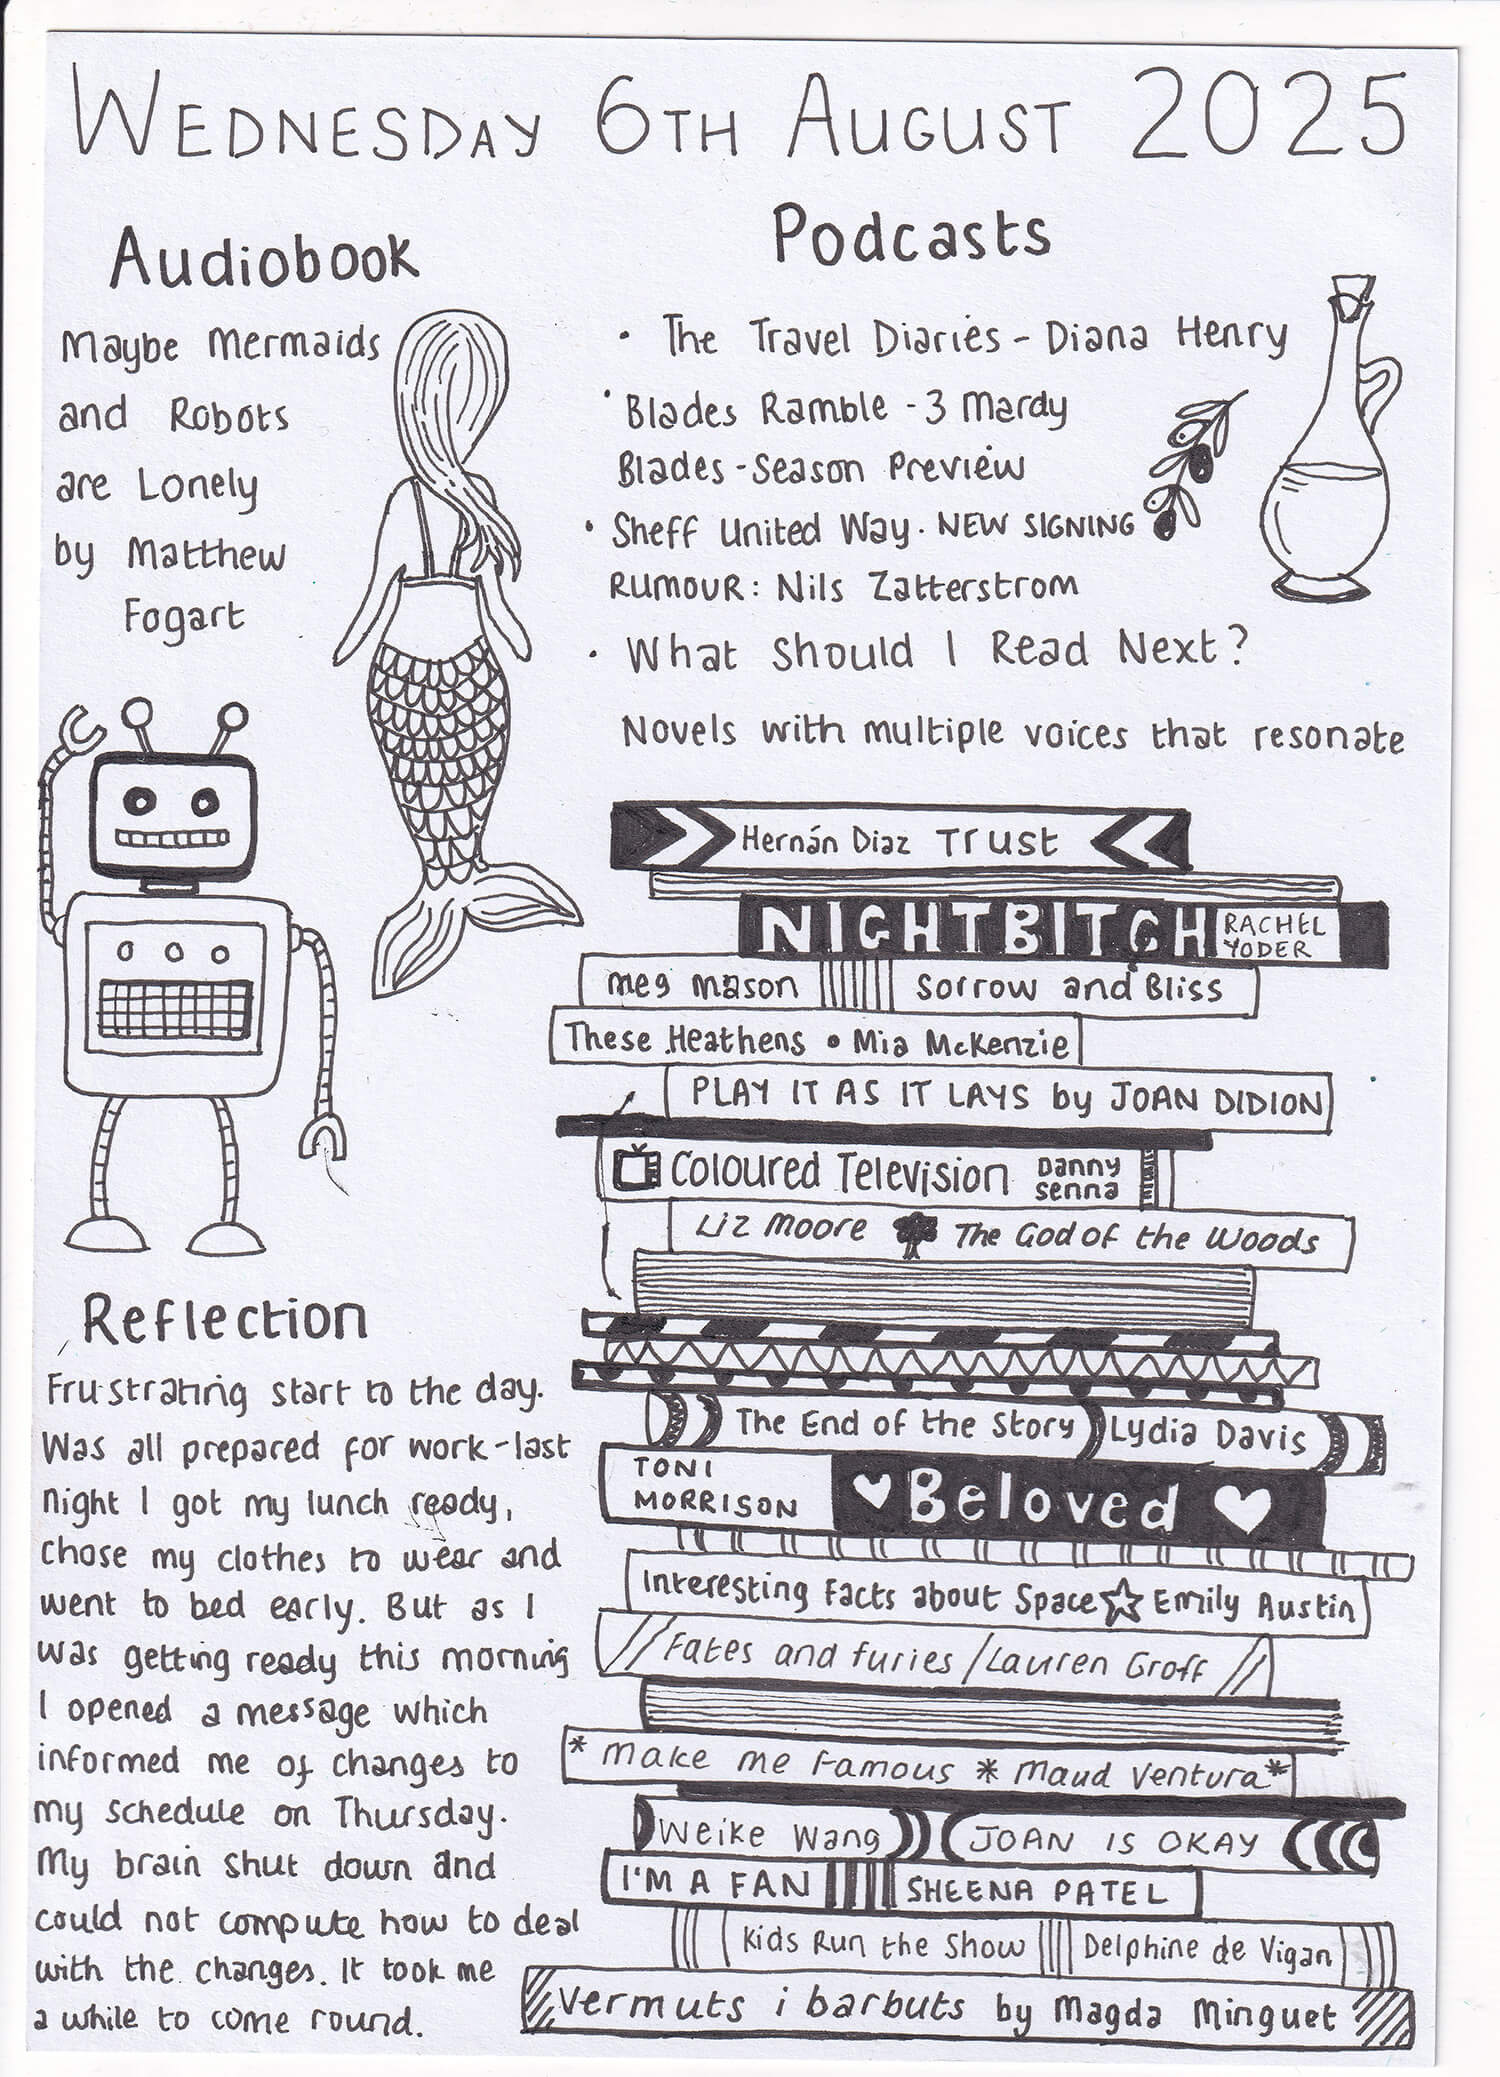 WEDNESDAY 6TH AUGUST 2025
Audiobook
Maybe Mermaids
and Robots
are Lonely
by Matthew
Fogart
Reflection
Frustrating start to the day.
Was all prepared for work-last
night I got my lunch ready,
chose my clothes to wear and
went to bed early. But as I
was getting ready this morning
I opened a message which
informed me of changes to
my schedule on Thursday.
My brain shut down and
could not compute how to deal
with the changes. It took me
a while to come round.
Podcasts
• The Travel Diaries - Diana Henry
• Blades Ramble - 3 Mardy
Blades - Season Preview
• Sheff United Way. NEW SIGNING
RUMOUR: Nils Zatterstrom
• What Should I Read Next?
Novels with multiple voices that resonate
Hernán Diaz Trust
NIGHTBITCH RACHEL
YODER
Meg Mason Sorrow and Bliss
These Heathens • Mia McKenzie
PLAY IT AS IT LAYS by JOAN DIDION
Coloured Television Danny
Senna
Liz Moore The God of the Woods
The End of the Story Lydia Davis
TONI
MORRISON Beloved
Interesting Facts about Space Emily Austin
Fates and furies / Lauren Groff
* Make me Famous * Maud Ventura *
Weike Wang JOAN IS OKAY
I'M A FAN SHEENA PATEL
Kids Run the Show Delphine de Vigan
Vermuts i barbuts by Magda Minguet